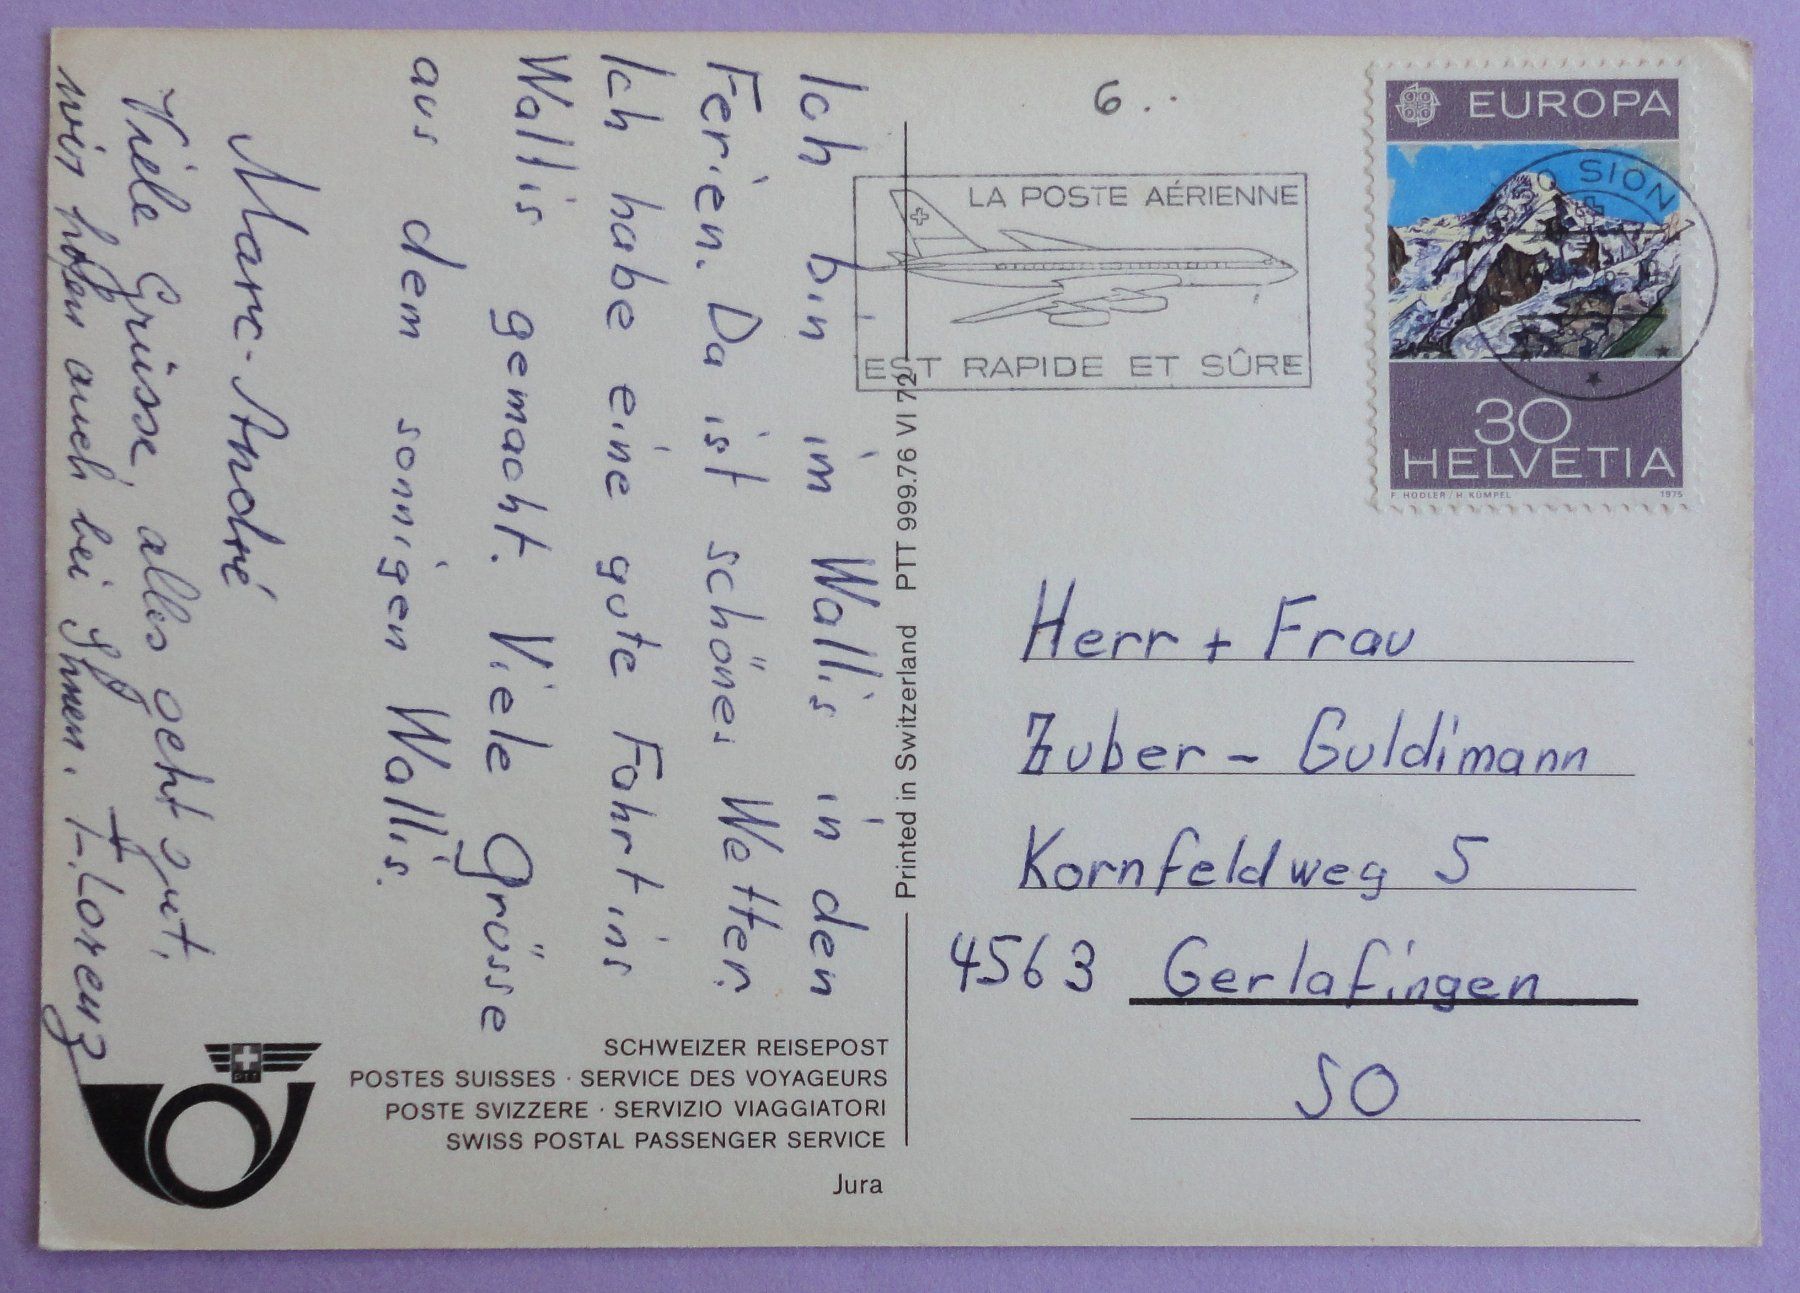 Ich bin im Wallis in den
Ferien. Da ist schönes Wetter.
Ich habe eine gute Fahrt ins
Wallis gemacht. Viele Grüsse
aus dem sonnigen Wallis.
Marc-André
Viele Grüsse alles geht gut,
wir hoffen auch bei Ihnen. F. Lorenz
SCHWEIZER REISEPOST
POSTES SUISSES · SERVICE DES VOYAGEURS
POSTE SVIZZERE · SERVIZIO VIAGGIATORI
SWISS POSTAL PASSENGER SERVICE
Jura
PTT
Printed in Switzerland PTT 999.76 VI 72
6..
LA POSTE AÉRIENNE
EST RAPIDE ET SÛRE
EUROPA
CEPT
SION 1
30
HELVETIA
F. HODLER / H. KÜMPEL 1975
Herr + Frau
Zuber - Guldimann
Kornfeldweg 5
4563 Gerlafingen
SO